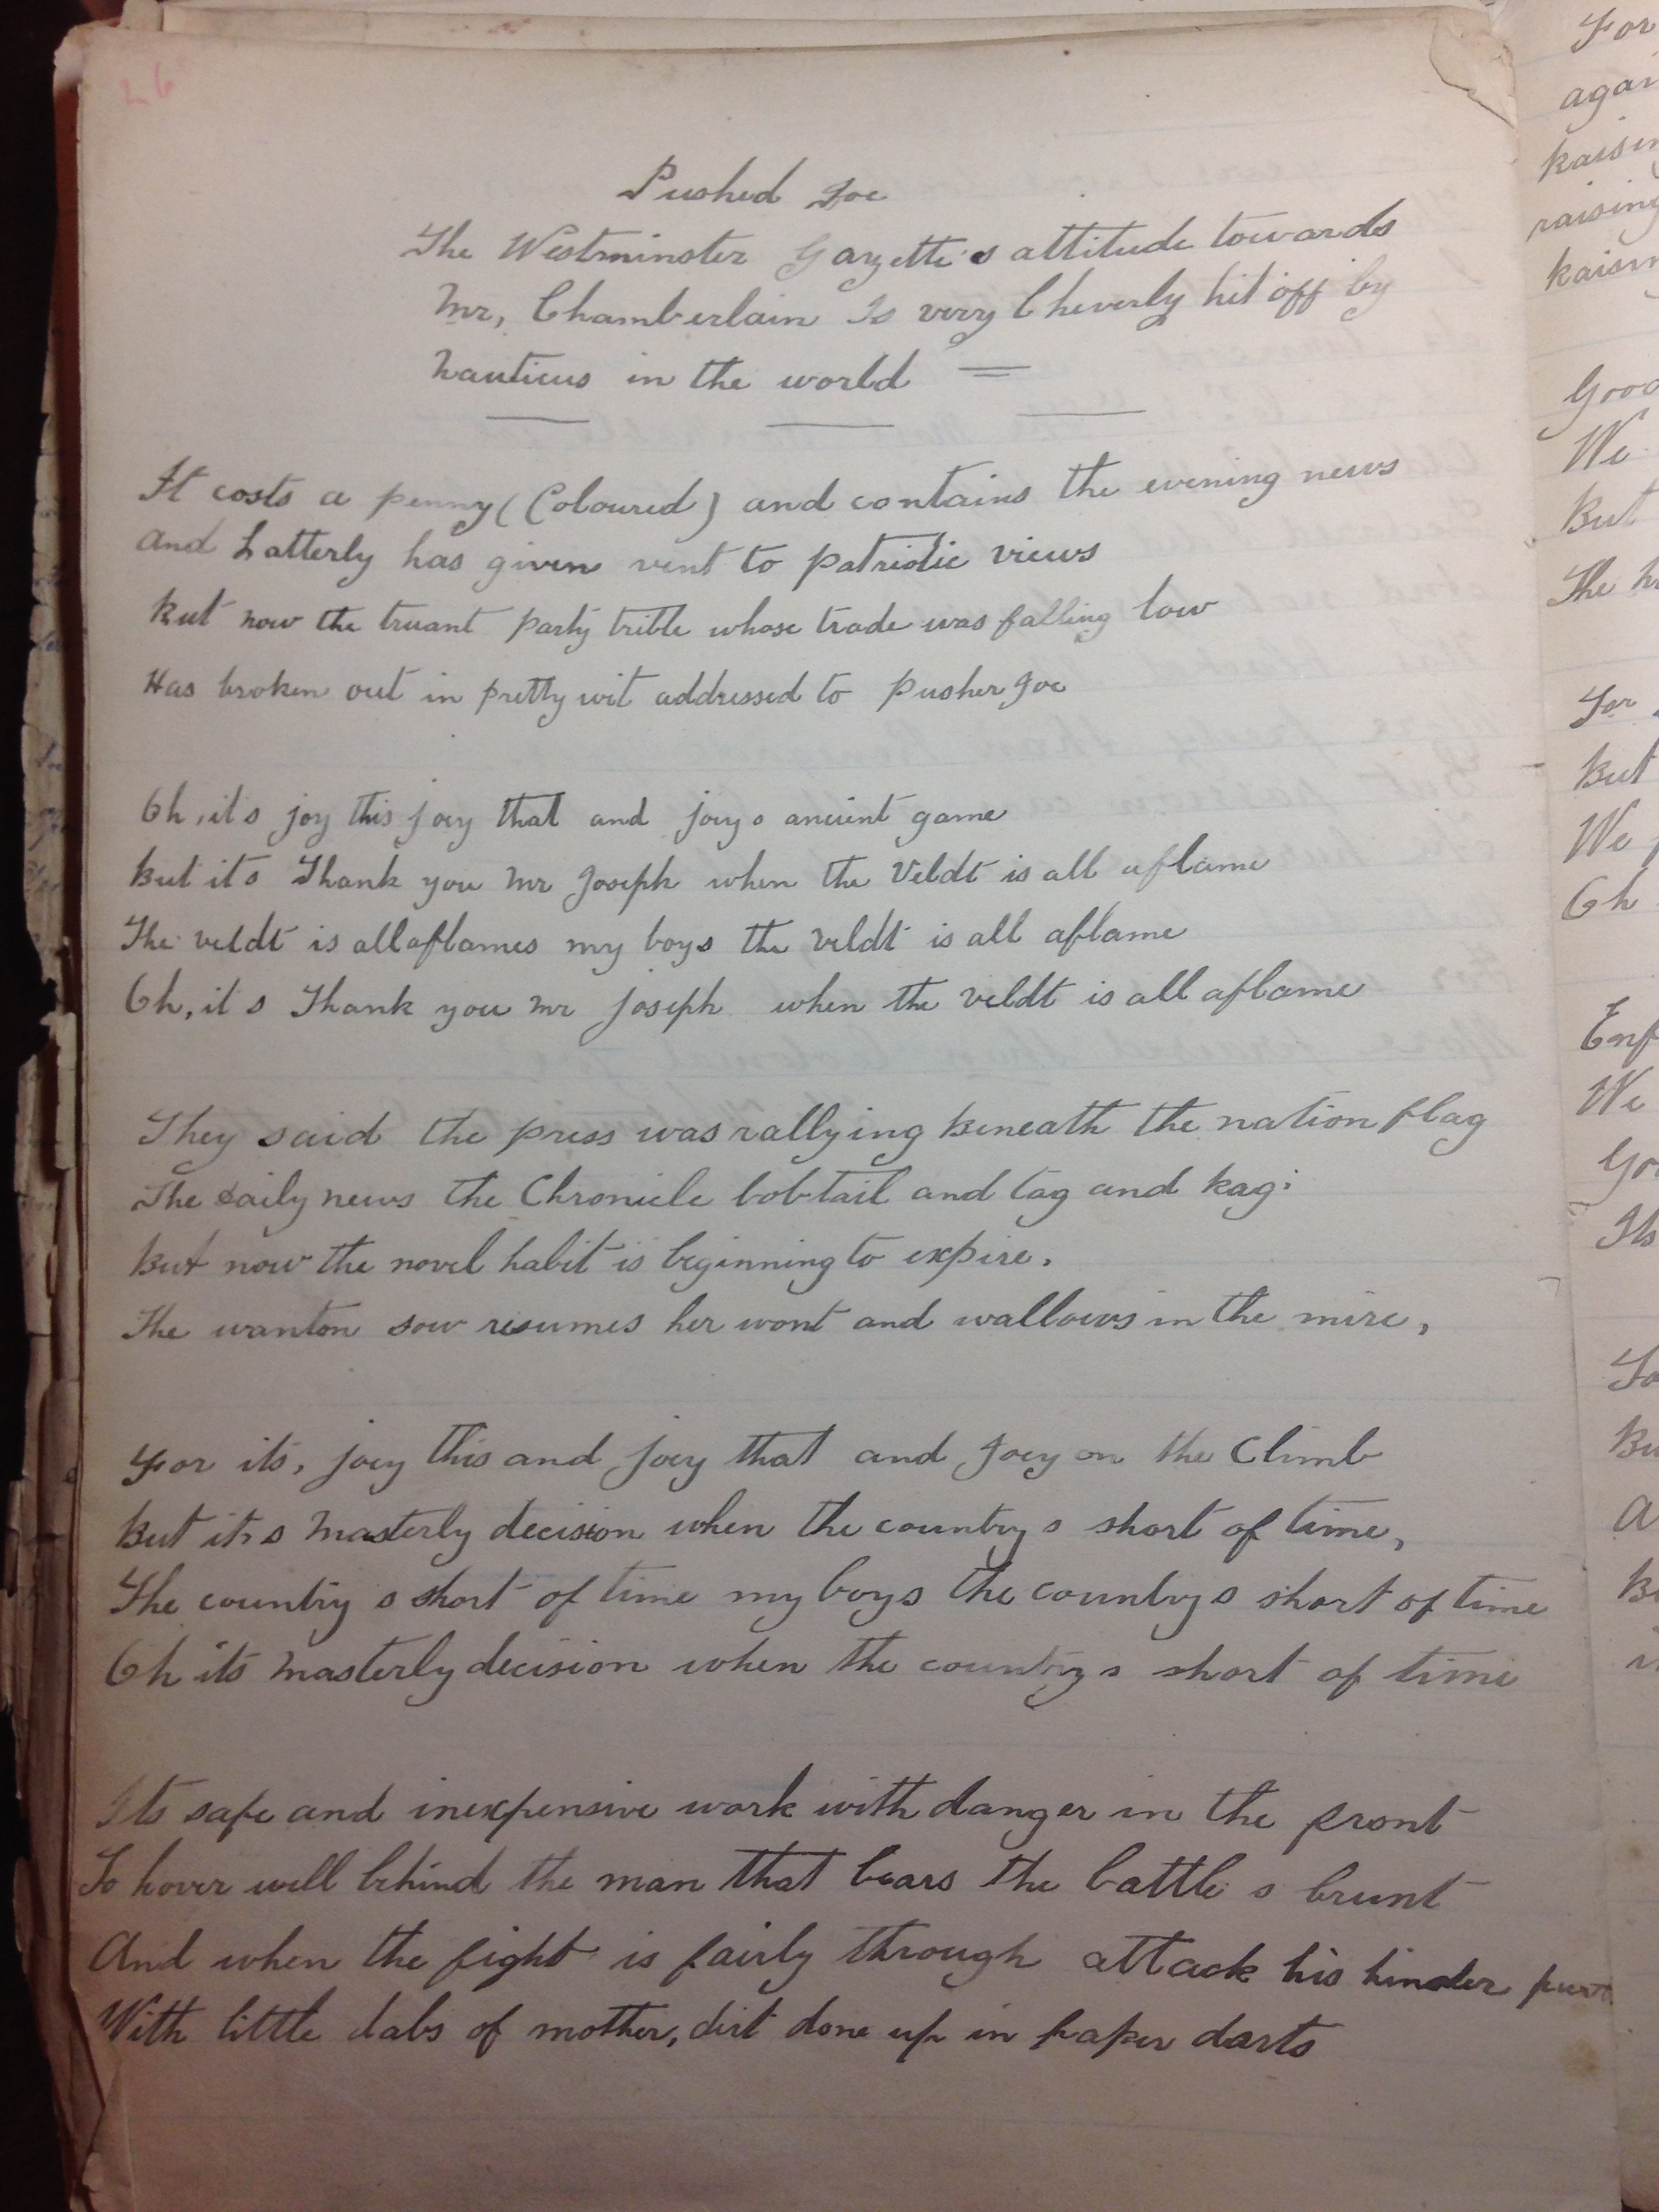 26
Pushed Joe
The Westminster Gazette's attitude towards
Mr, Chamberlain Is very Cheverly hit off by
Nauticus in the world =
It costs a penny (Coloured) and contains the evening news
and Latterly has given vent to patriotic views
But now the truant party trible whose trade was falling low
Has broken out in pretty wit addressed to Pusher Joe
Oh, it s joy this joey that and joey s ancient game
But its Thank you Mr Joseph when the Veldt is all aflame
The veldt is all aflames my boys the veldt is all aflame
Oh, it s Thank you Mr Joseph when the veldt is all aflame
They said the press was rallying Beneath the nation flag
The daily news the Chronicle bobtail and tag and Rag:
But now the novel habit is beginning to expire.
The wanton sow resumes her wont and wallows in the mire,
For its, joey this and joey that and Joey on the Climb
But its s Masterly decision when the country s short of time,
The country s short of time my boys the country s short of time
Oh its Masterly decision when the country s short of time
Its safe and inexpensive work with danger in the front
To hover well behind the man that bears the battle s brunt
And when the fight is fairly through attack his hinder
With little dabs of mother, dirt done up in paper darts
For
kaisin
raising
We
But
The
For
But
We
Oh
We